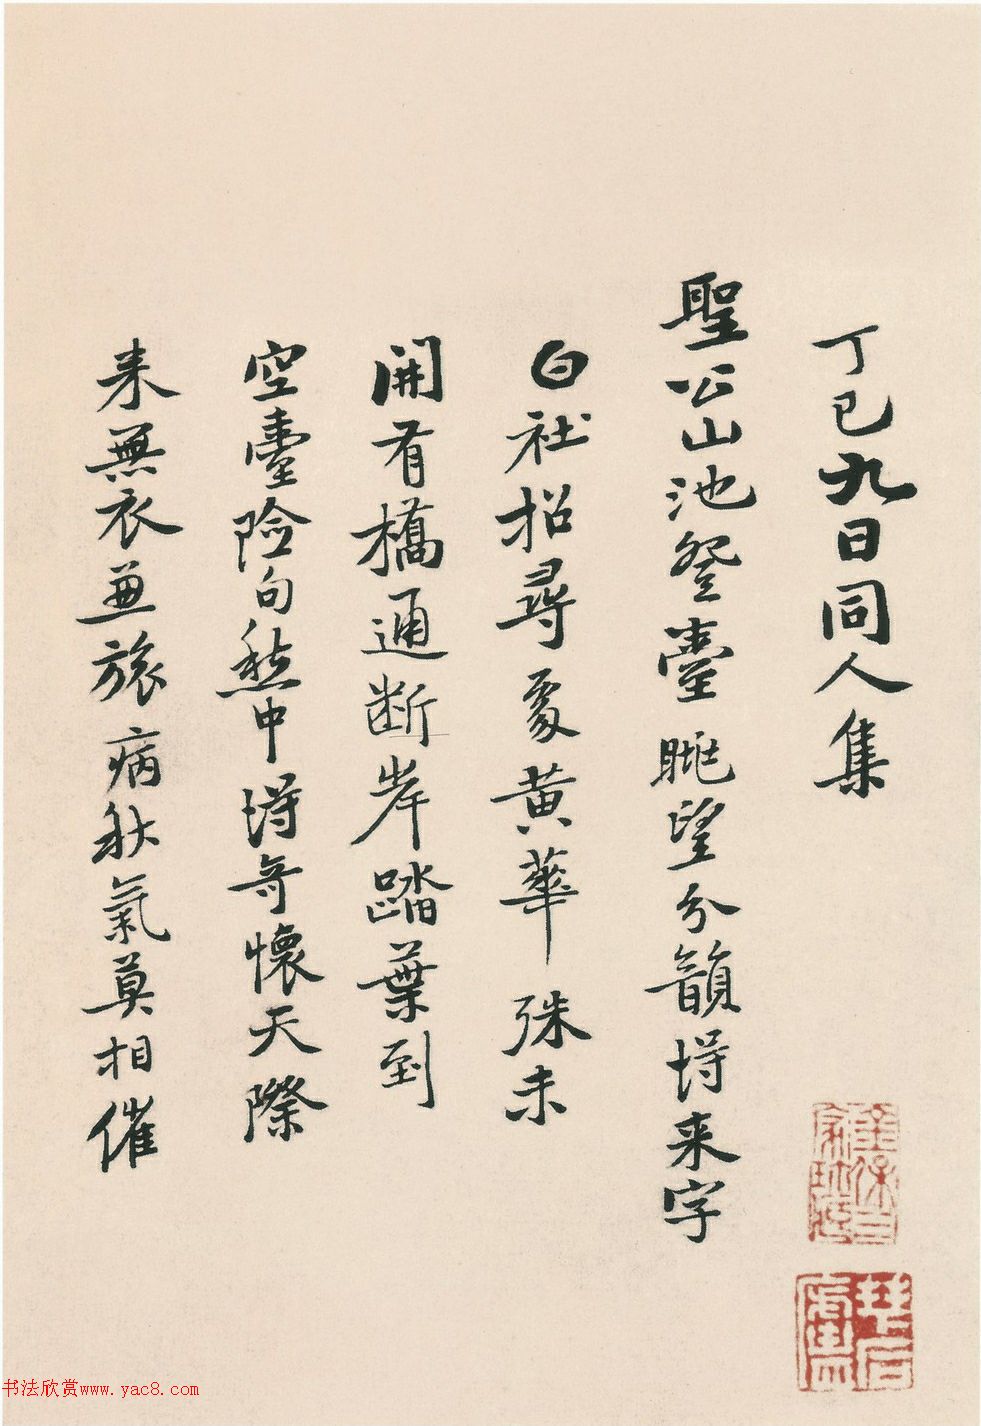 丁巳九日同人集
聖公山池登臺眺望分韻得来字
白社招尋處黄華殊未
開有橋通断岸踏葉到
空臺險句愁中得奇懷天際
来無衣並旅病秋氣莫相催
书法欣赏www.yac8.com